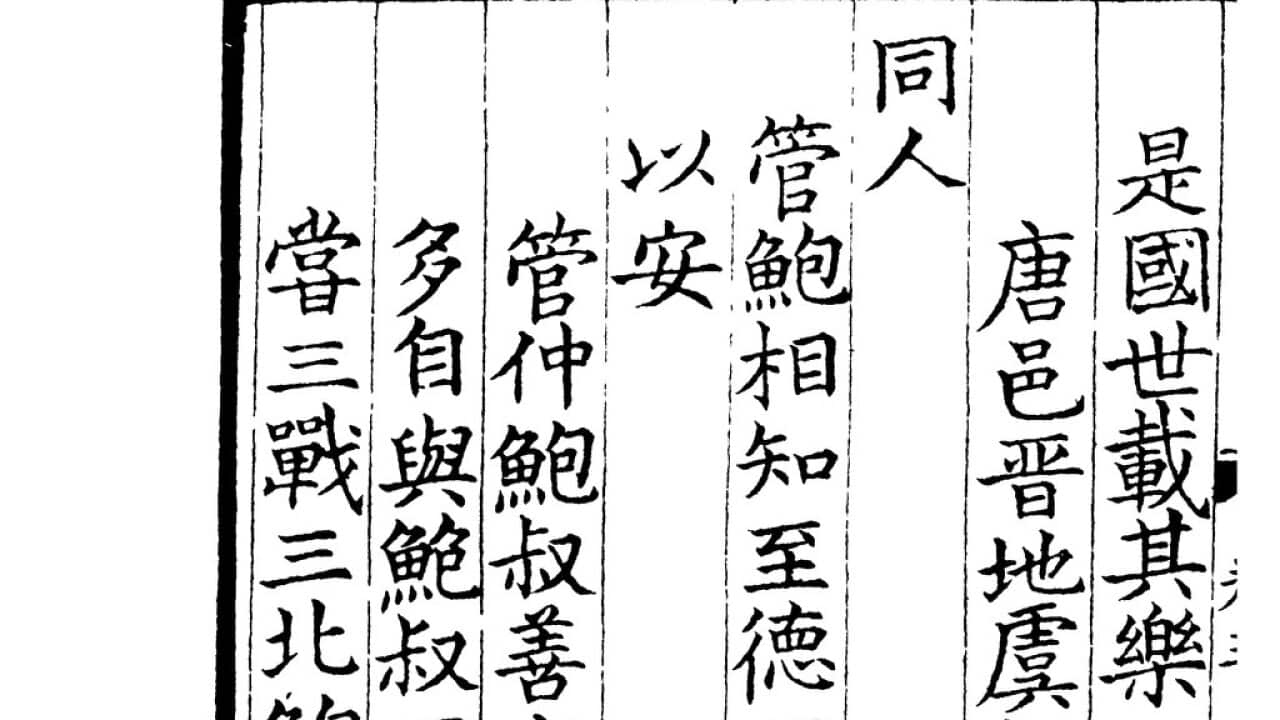 是國世載其樂
唐邑晋地虞
同人
管鮑相知至德
以安
管仲鮑叔善
多自與鮑叔
嘗三戰三北